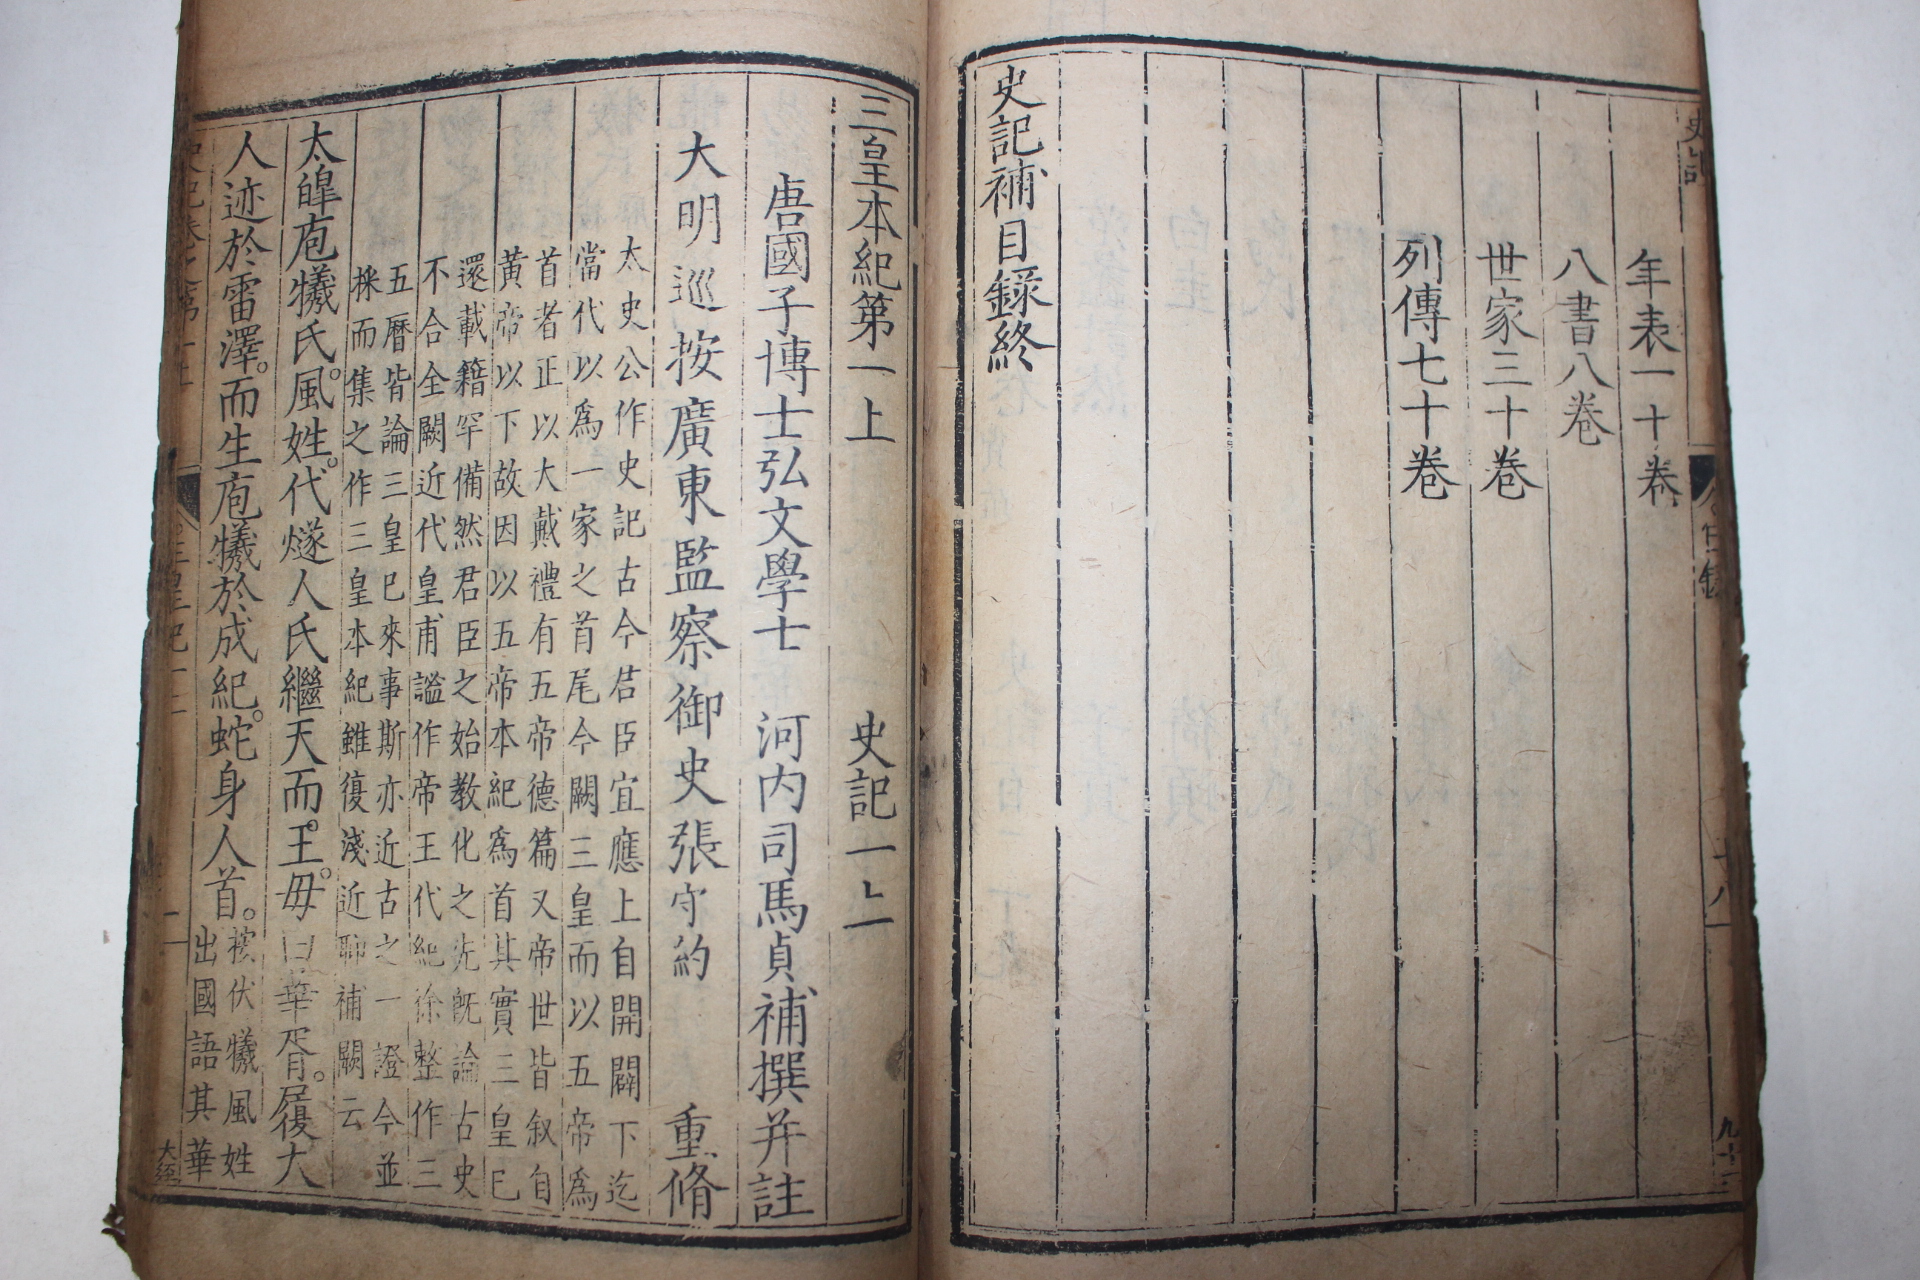 年表一十卷
八書八卷
世家三十卷
列傳七十卷
史記補目錄終
三皇本紀第一上 史記一上
唐國子博士弘文學士 河内司馬貞補撰并註
大明巡按廣東監察御史張守約 重脩
太史公作史記古今君臣宜應上自開闢下迄
當代以爲一家之首尾今闕三皇而以五帝爲
首者正以大戴禮有五帝德篇又帝世皆叙自
黄帝以下故因以五帝本紀爲首其實三皇已
還載籍罕備然君臣之始教化之先旣論古史
不合全闕近代皇甫謐作帝王代紀徐整作三
五曆皆論三皇已來事斯亦近古之一證今並
採而集之作三皇本紀雖復淺近聊補闕云
太皥庖犧氏。風姓。代燧人氏繼天而。王。毋曰華胥。履大
人迹於雷澤。而生庖犧於成紀。蛇身人首。
按伏犧風姓
出國語其華